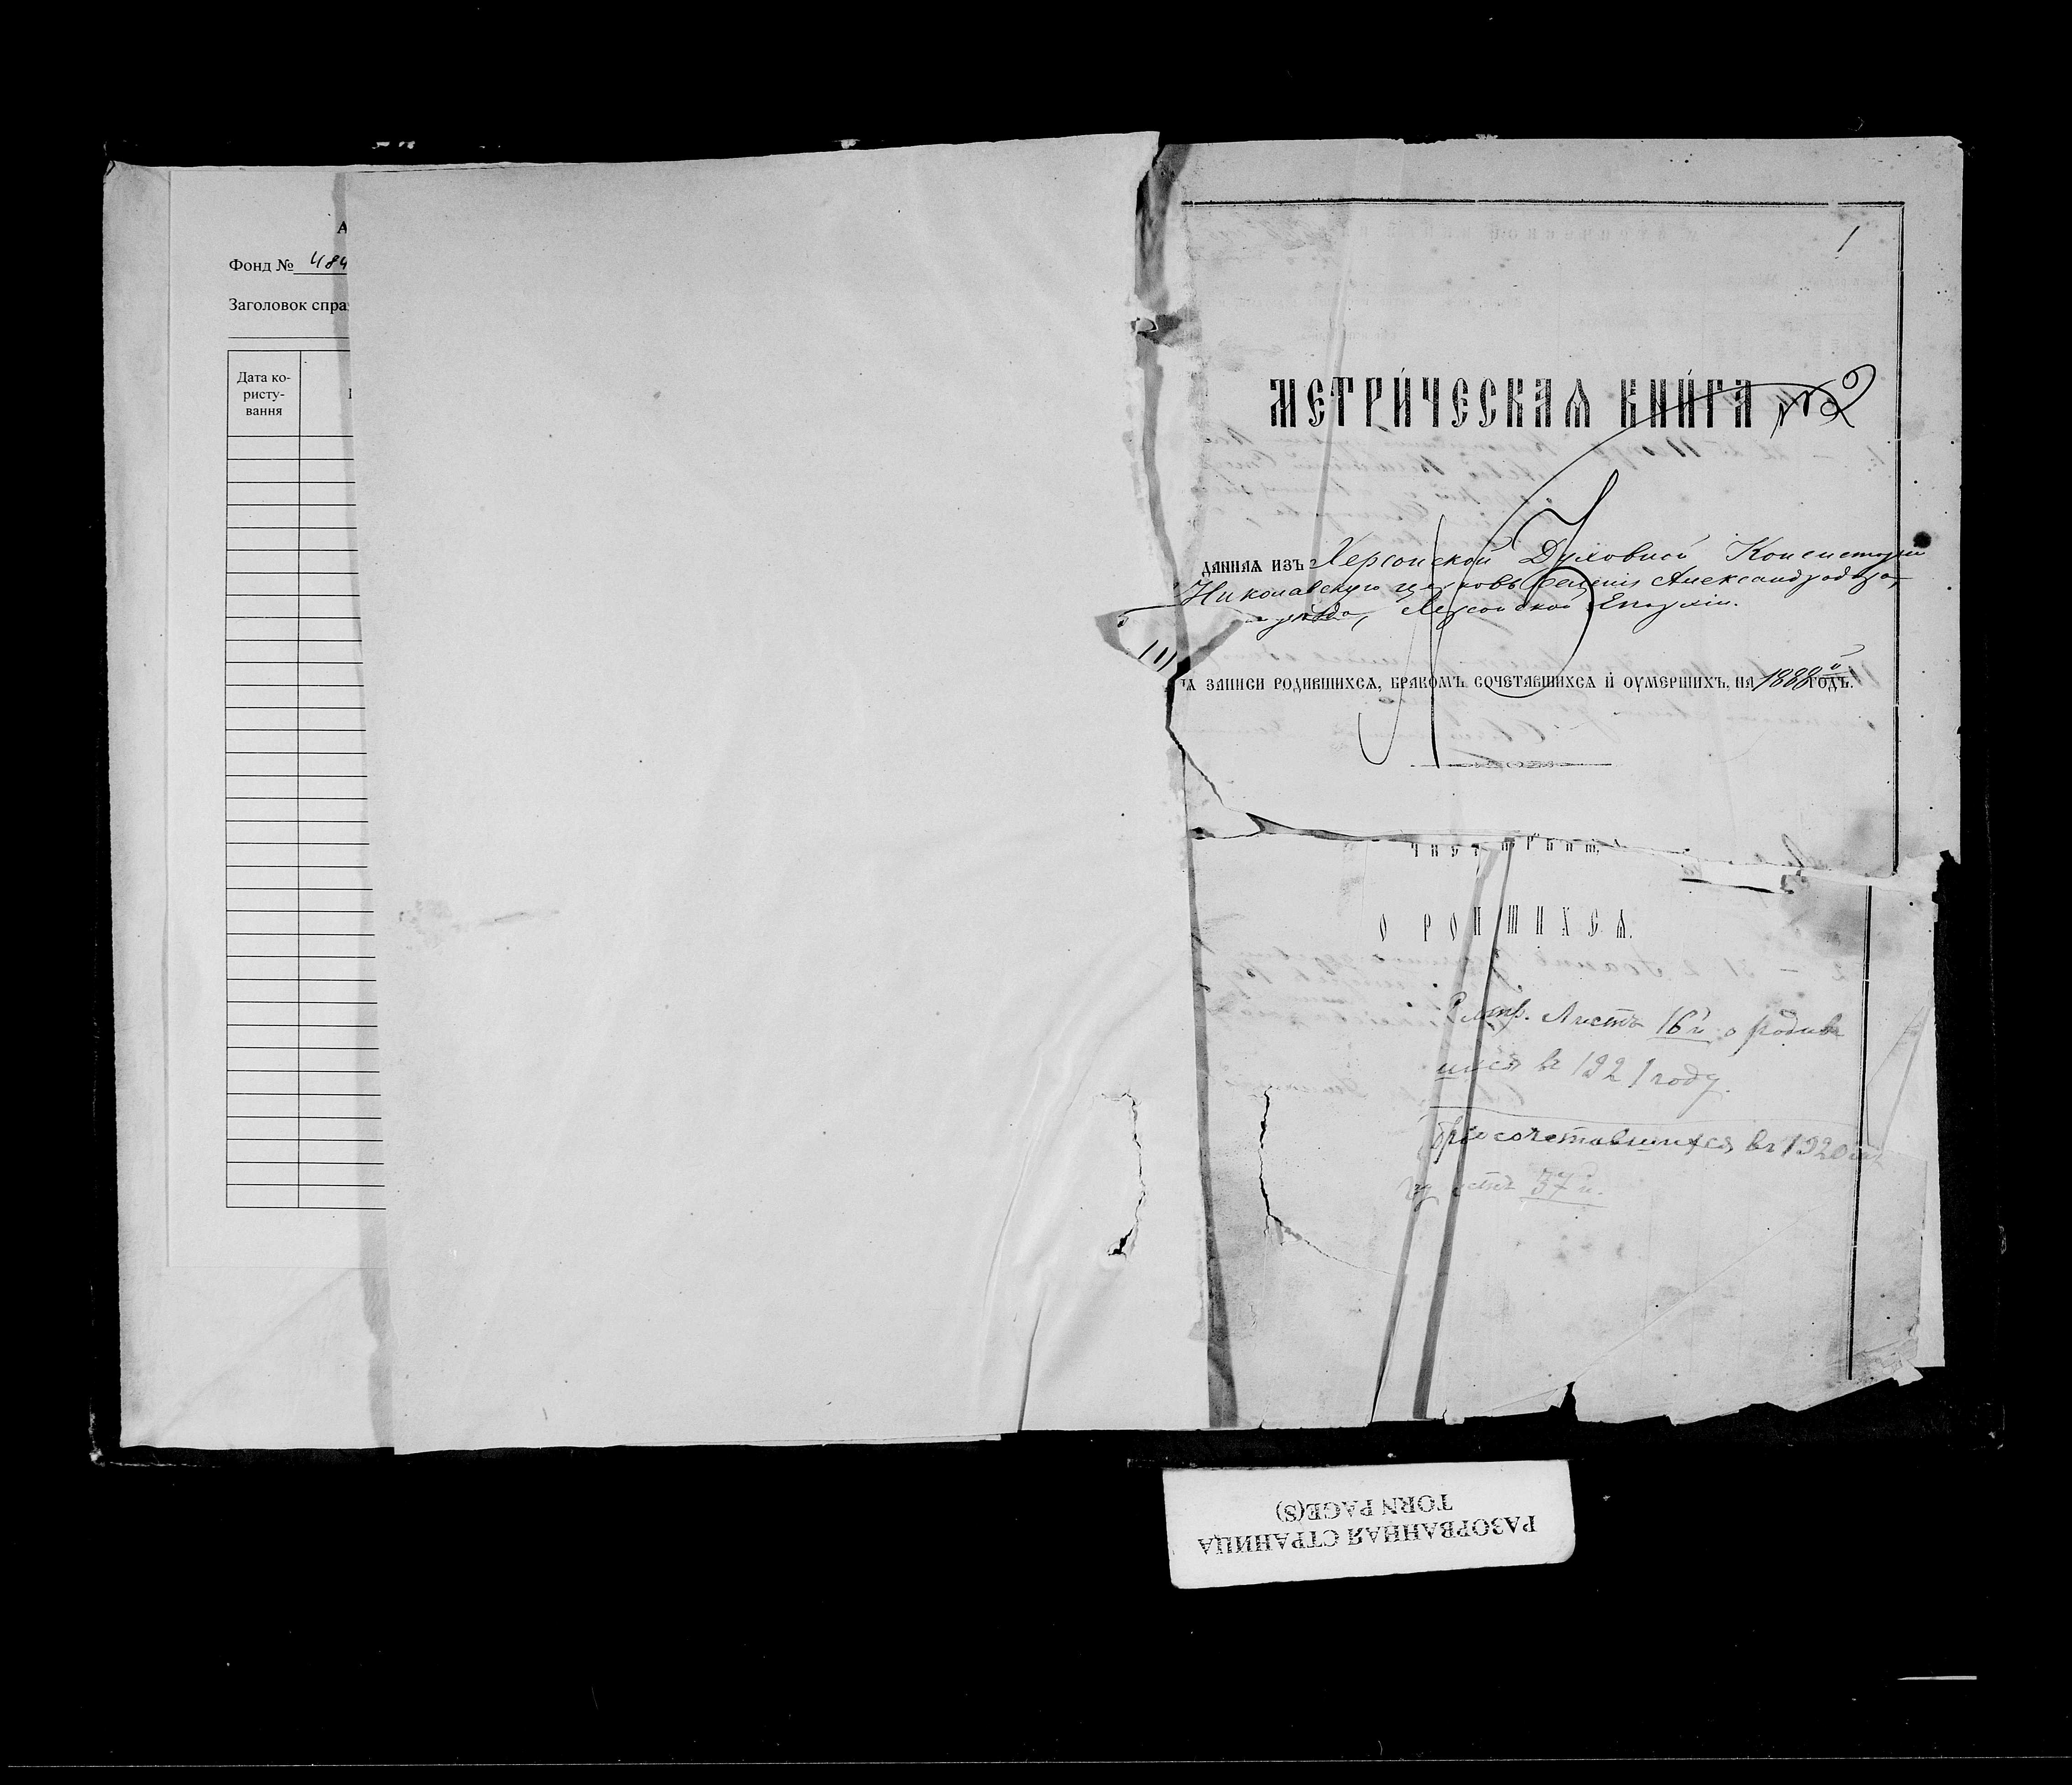 Фонд № 484
Заголовок спра
Дата ко-
ристу-
вання
1
МЕТРИ́ЧЕСКАѦ КНИ́ГА №2
ДАННАѦ ИЗЪ Херсонской Духовной Консисторіи
Николаевскую церковь селенія
уѣзда, Херсонской Епархіи.
ЗАПИСИ РОДИВШИХСѦ, БРАКОМЪ СОЧЕТАВШИХСѦ И҆ ОУМЕРШИХЪ, НА 1888й ГОДЪ.
О РО ШИХСѦ.
Смтр. Листъ 16й о родив
шихся въ 1921 году.
сочетавшихся въ 1920
37й.
РАЗОРВАННАЯ СТРАНИЦА
TORN PAGE(S)